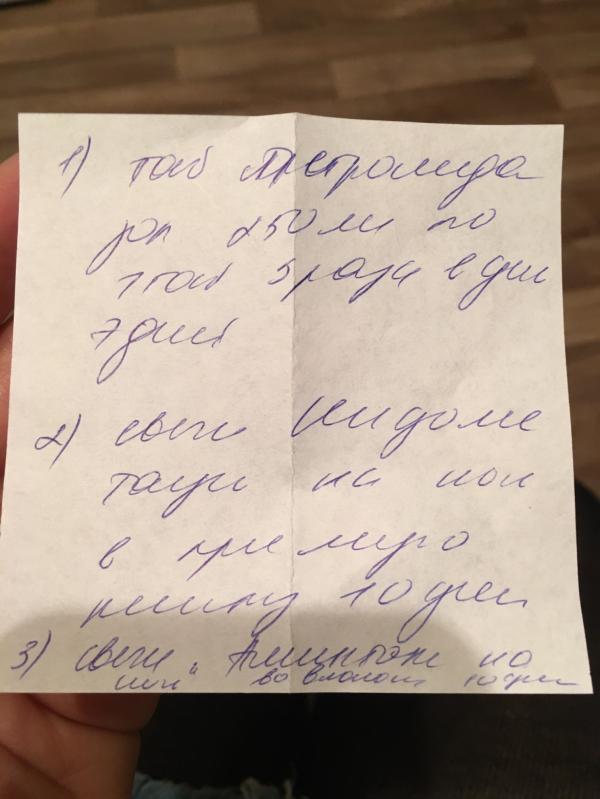 1) таб Метронида
зол 250 мг по
1 таб 3 раза в день
7 дней
2) свечи Индоме
тацин на ноч
в прямую
кишку 10 дней
3) свечи на
ноч во влагал 10 дней